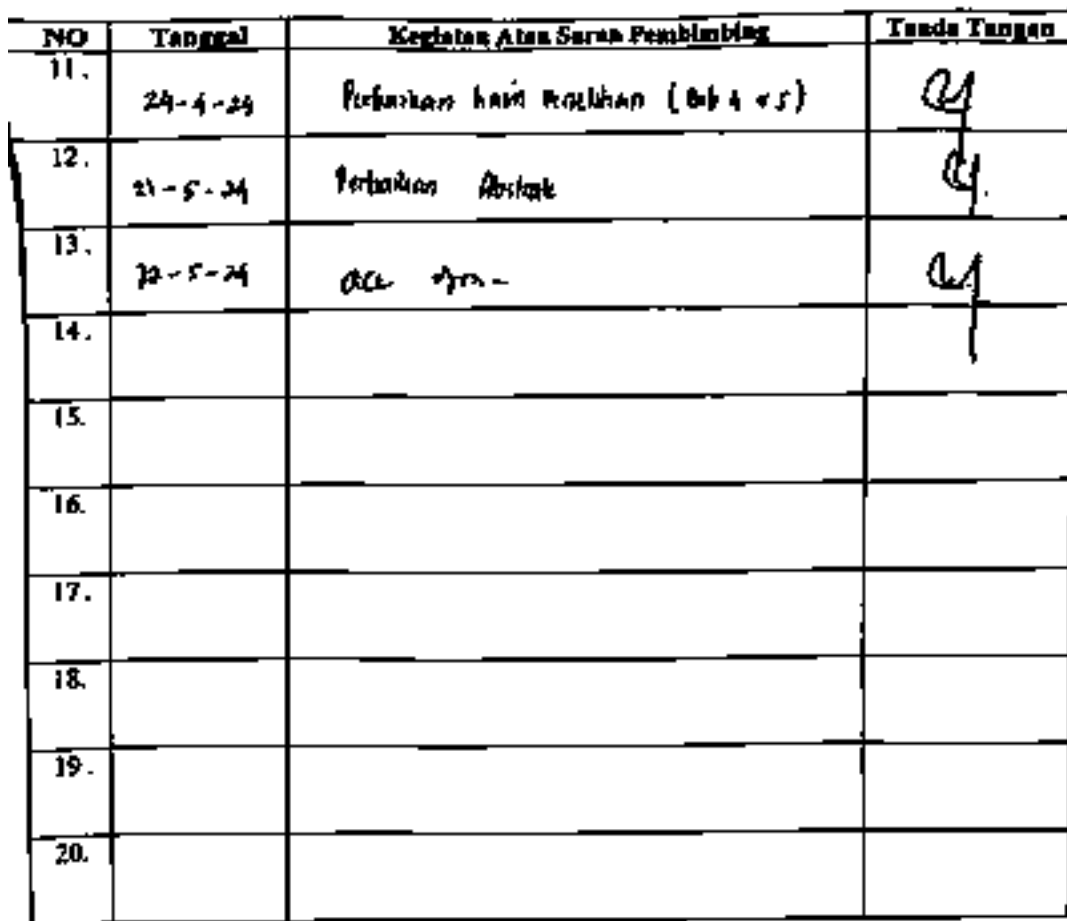 NO Tanggal Kegiatan Atau Saran Pembimbing Tanda Tangan
11.
24-4-24 Perbaikan hasil penelitian (Bab 4 & 5)
12.
21-5-24 Perbaikan Abstrak
13.
22-5-24 acc
14.
15.
16.
17.
18.
19.
20.